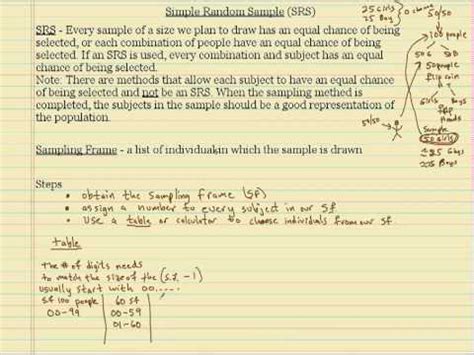 Simple Random Sample (SRS)
SRS - Every sample of a size we plan to draw has an equal chance of being
selected, or each combination of people have an equal chance of being
selected. If an SRS is used, every combination and subject has an equal
chance of being selected.
Note: There are methods that allow each subject to have an equal chance
of being selected and not be an SRS. When the sampling method is
completed, the subjects in the sample should be a good representation of
the population.
Sampling Frame - a list of individuals in which the sample is drawn
Steps
• obtain the sampling frame (SF)
• assign a number to every subject in our SF
• Use a table or calculator to choose individuals from our SF
Table
The # of digits needs
to match the size of the (S.F. -1)
usually start with 00.....
Sf 100 people
00-99
60 Sf
00-59
01-60
25 Girls
25 Boys
0 chance
50/50
100 people
50 G
50 B
50 people
flip coin
Girls
Boys
flip
heads
50/50
Sample
50 Girls
25 Boys